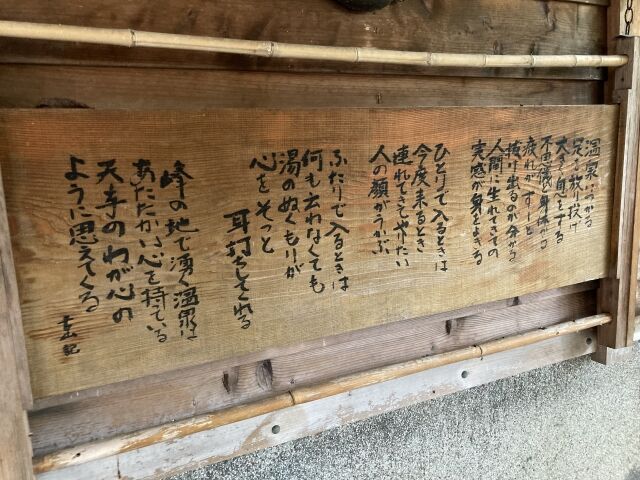 温泉につかる
足を放り投げ
大きく息をする
不思議に身体から
疲れがすーと
抜け出るのが分かる
人間に生れきての
実感が身によぎる
ひとりで入るときは
今度来るとき
連れてきてやりたい
人の顔がうかぶ
ふたりで入るときは
何も云わなくても
湯のぬくもりが
心をそっと
耳打ちしてくれる
峰の地で湧く温泉は
あたたかい心を持ている
天寺のわが心の
ように思えてくる